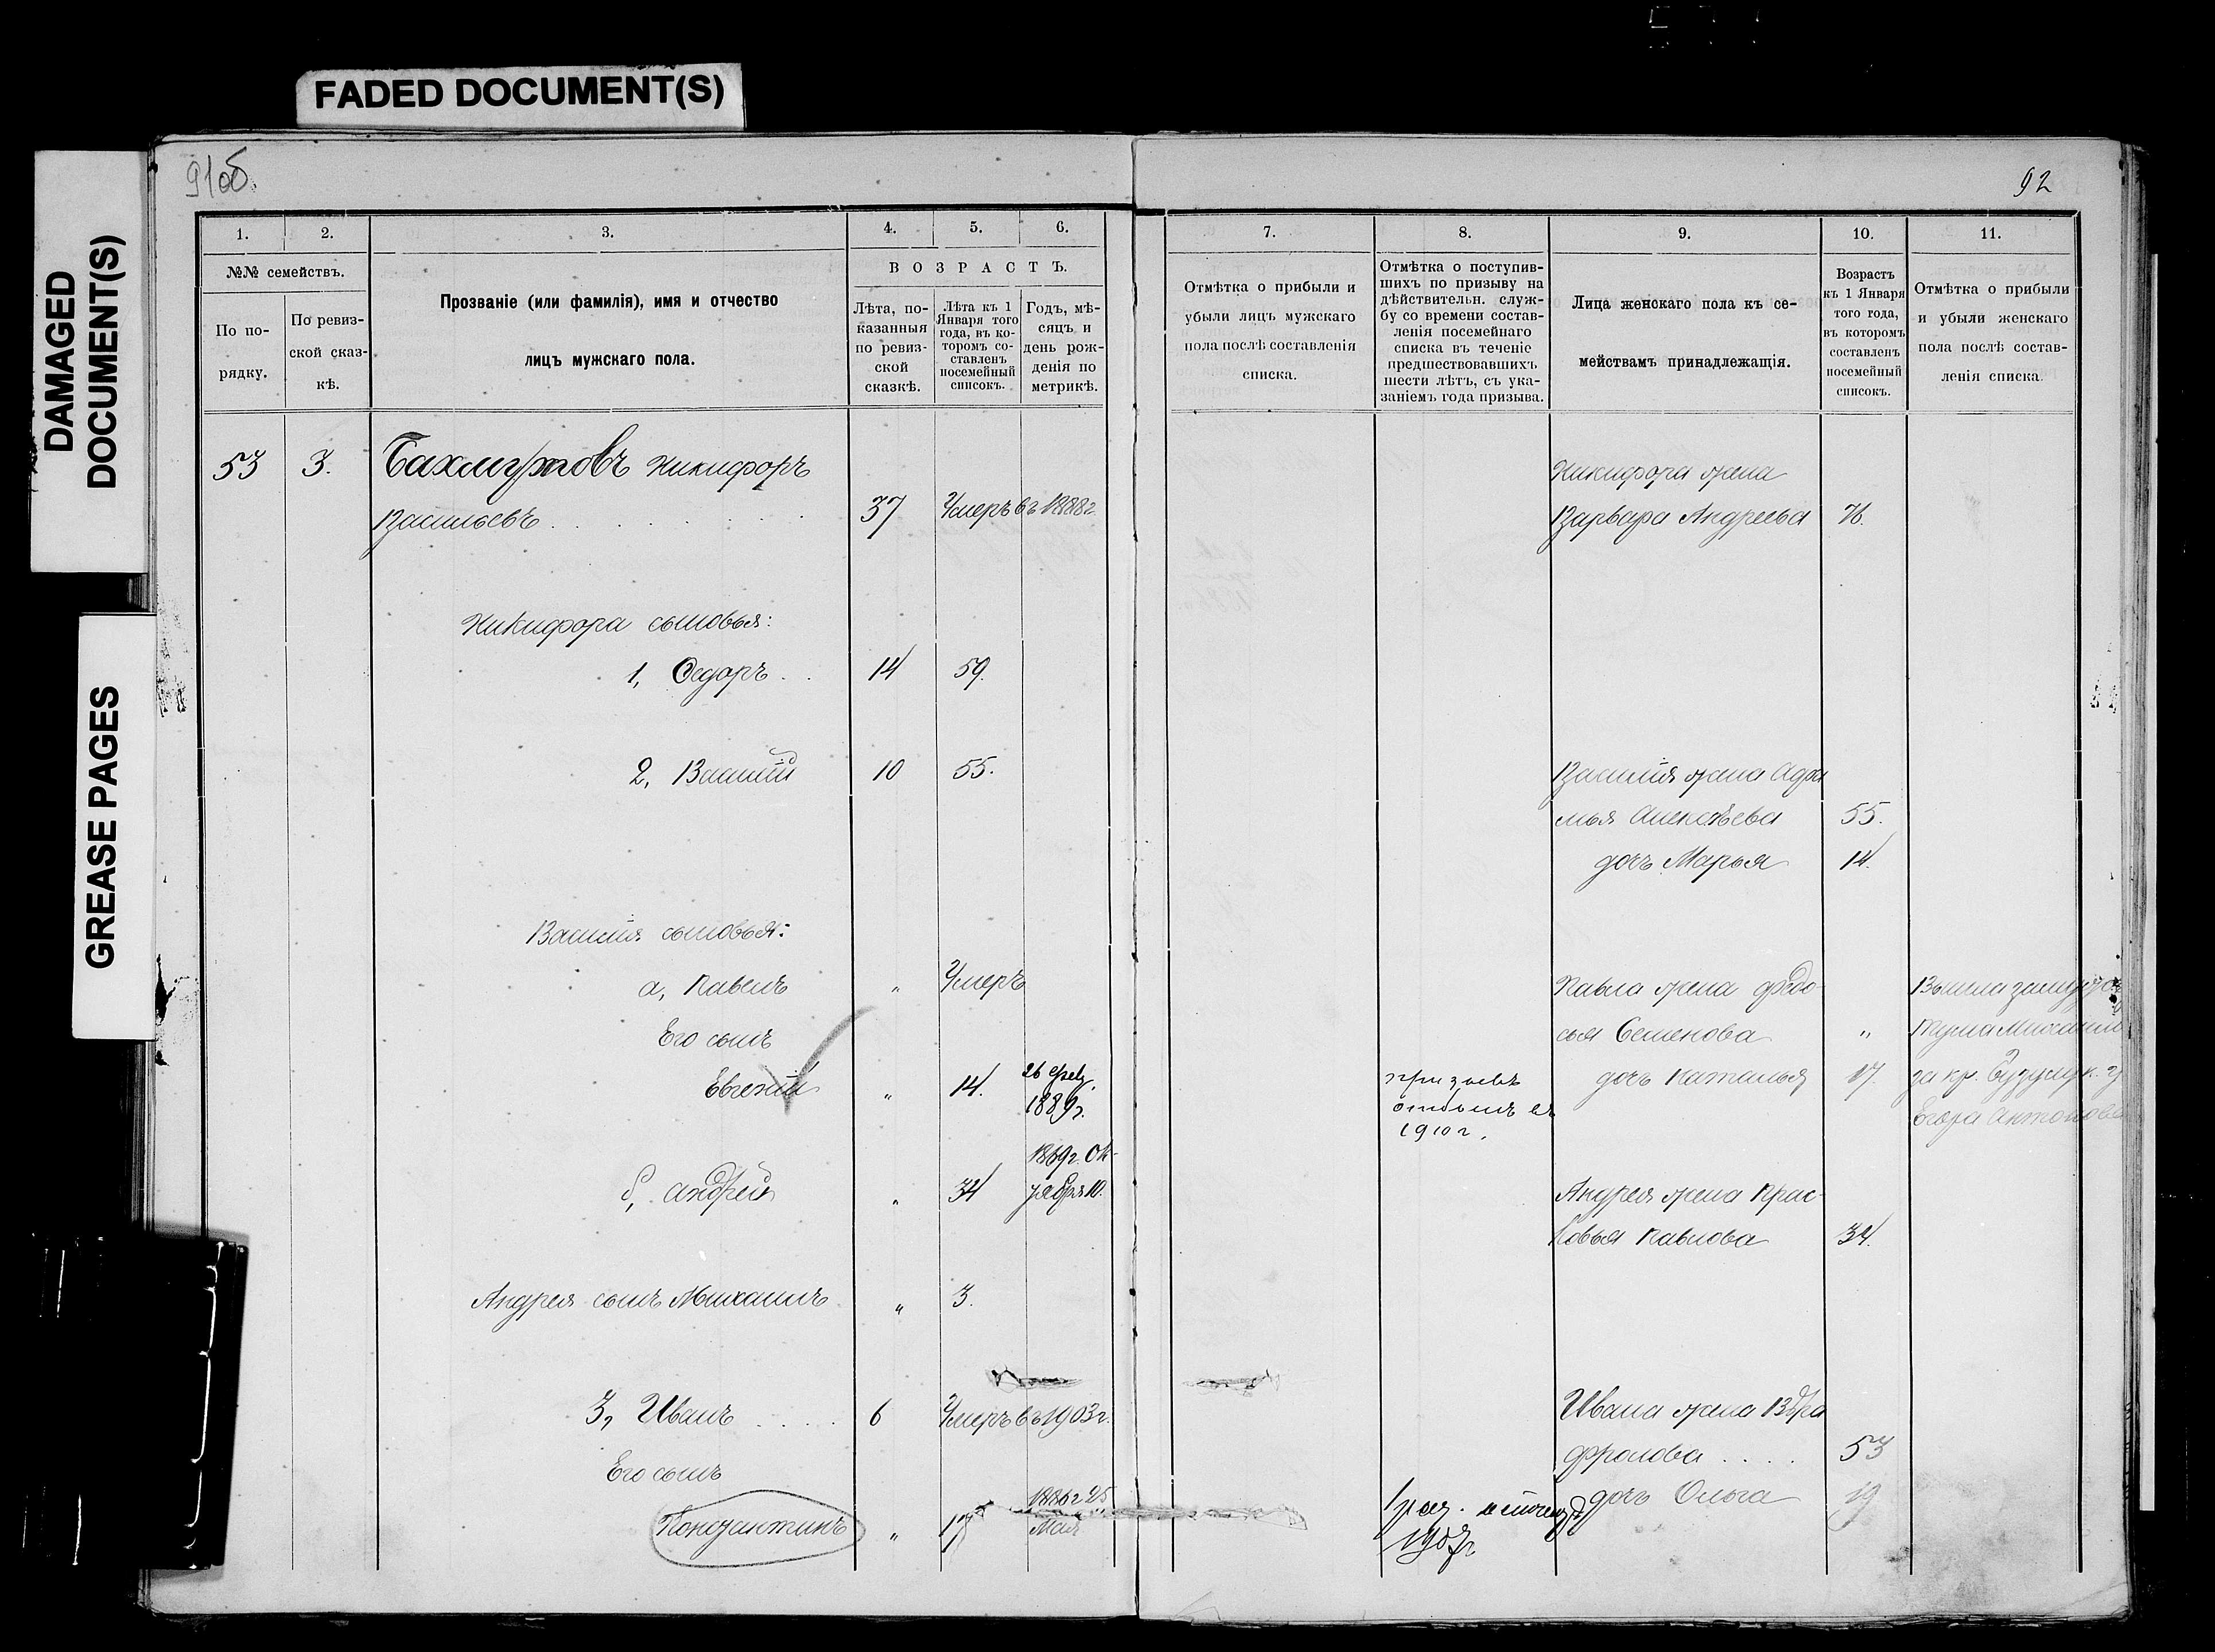 FADED DOCUMENT(S)
DAMAGED
DOCUMENT(S)
GREASE PAGES
91об
92
1.
2.
3.
4.
5.
6.
№№ семействъ.
В О З Р А С Т Ъ.
По по-
рядку.
По ревиз-
ской сказ-
кѣ.
Прозваніе (или фамилія), имя и отчество
лицъ мужскаго пола.
Лѣта, по-
казанныя
по ревиз-
ской
сказкѣ.
Лѣта къ 1
Января того
года, въ ко-
торомъ со-
ставленъ
посемейный
списокъ.
Годъ, мѣ-
сяцъ и
день рож-
денія по
метрикѣ.
7.
8.
9.
10.
11.
Отмѣтка о прибыли и
убыли лицъ мужскаго
пола послѣ составленія
списка.
Отмѣтка о поступив-
шихъ по призыву на
дѣйствительн. служ-
бу со времени состав-
ленія посемейнаго
списка въ теченіе
предшествовавшихъ
шести лѣтъ, съ ука-
заніемъ года призыва.
Лица женскаго пола къ се-
мействамъ принадлежащія.
Возрастъ
къ 1 Января
того года,
въ которомъ
составленъ
посемейный
списокъ.
Отмѣтка о прибыли
и убыли женскаго
пола послѣ состав-
ленія списка.
53 3. Бахмутовъ Никифоръ
Васильевъ 37 Умеръ въ 1888г.
Никифора жена
Варвара Андреева 76.
Никифора сыновья:
1, Федоръ 14 59.
2, Василій 10 55.
Василія жена
Алексѣева 55.
дочь Марья 14.
Василія сыновья:
а, Павелъ " Умеръ
Павла жена Федо
сья Семенова " 
Вышла замужъ
Его сынъ
Евгеній " 14. 26 1889г.
призывъ
отбылъ въ
1910г.
дочь Наталья 17. за кр. Бузулук. у
Егора Антонова
б, Андрей " 34 1869г. Ок-
тября 10.
Андрея жена Прас-
ковья Павлова 34.
Андрея сынъ Михаилъ " 3.
3, Иванъ 6 Умеръ въ 1903г.
Ивана жена Вѣра
Фролова 53
Его сынъ
Константинъ " 17 1886г 25
Мая
1 раз.
1907г
дочь Ольга 19